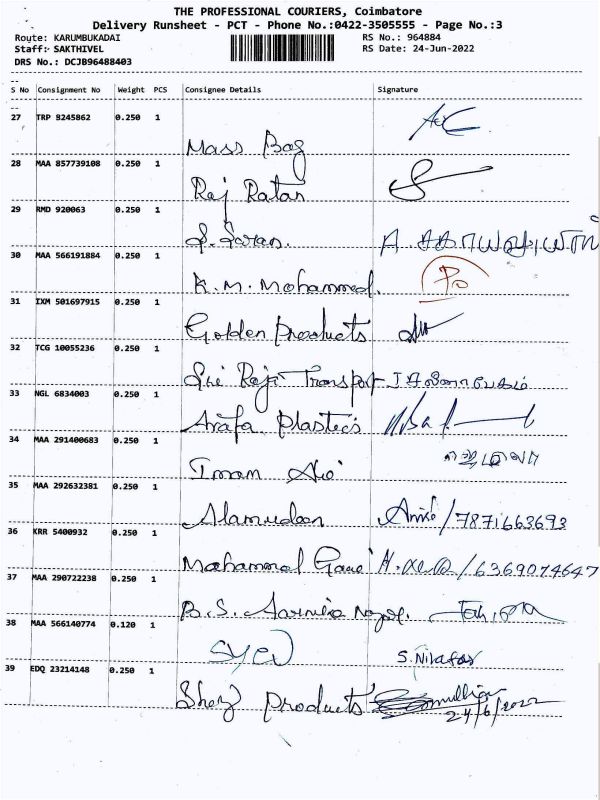 THE PROFESSIONAL COURIERS, Coimbatore
Delivery Runsheet - PCT - Phone No.:0422-3505555 - Page No.:3
Route: KARUMBUKADAI RS No.: 964884
Staff: SAKTHIVEL RS Date: 24-Jun-2022
DRS No.: DCJB96488403
S No Consignment No Weight PCS Consignee Details Signature
27 TRP 8245862 0.250 1
Mass Bag
28 MAA 857739108 0.250 1
Raj Ratan
29 RMD 920063 0.250 1
S. Saran.
30 MAA 566191884 0.250 1
K. M. Mohammed.
31 IXM 501697915 0.250 1
Golden Products
32 TCG 10055236 0.250 1
Sri Raja Transport
33 NGL 6834003 0.250 1
Arafa Plastics
34 MAA 291400683 0.250 1
Imam
35 MAA 292632381 0.250 1
/7871663693
36 KRR 5400932 0.250 1
Mohammed /6369074647
37 MAA 290722238 0.250 1
B. S.
38 MAA 566140774 0.120 1
Syed S. Nilafar
39 EDQ 23214148 0.250 1
Products
24/6/2022